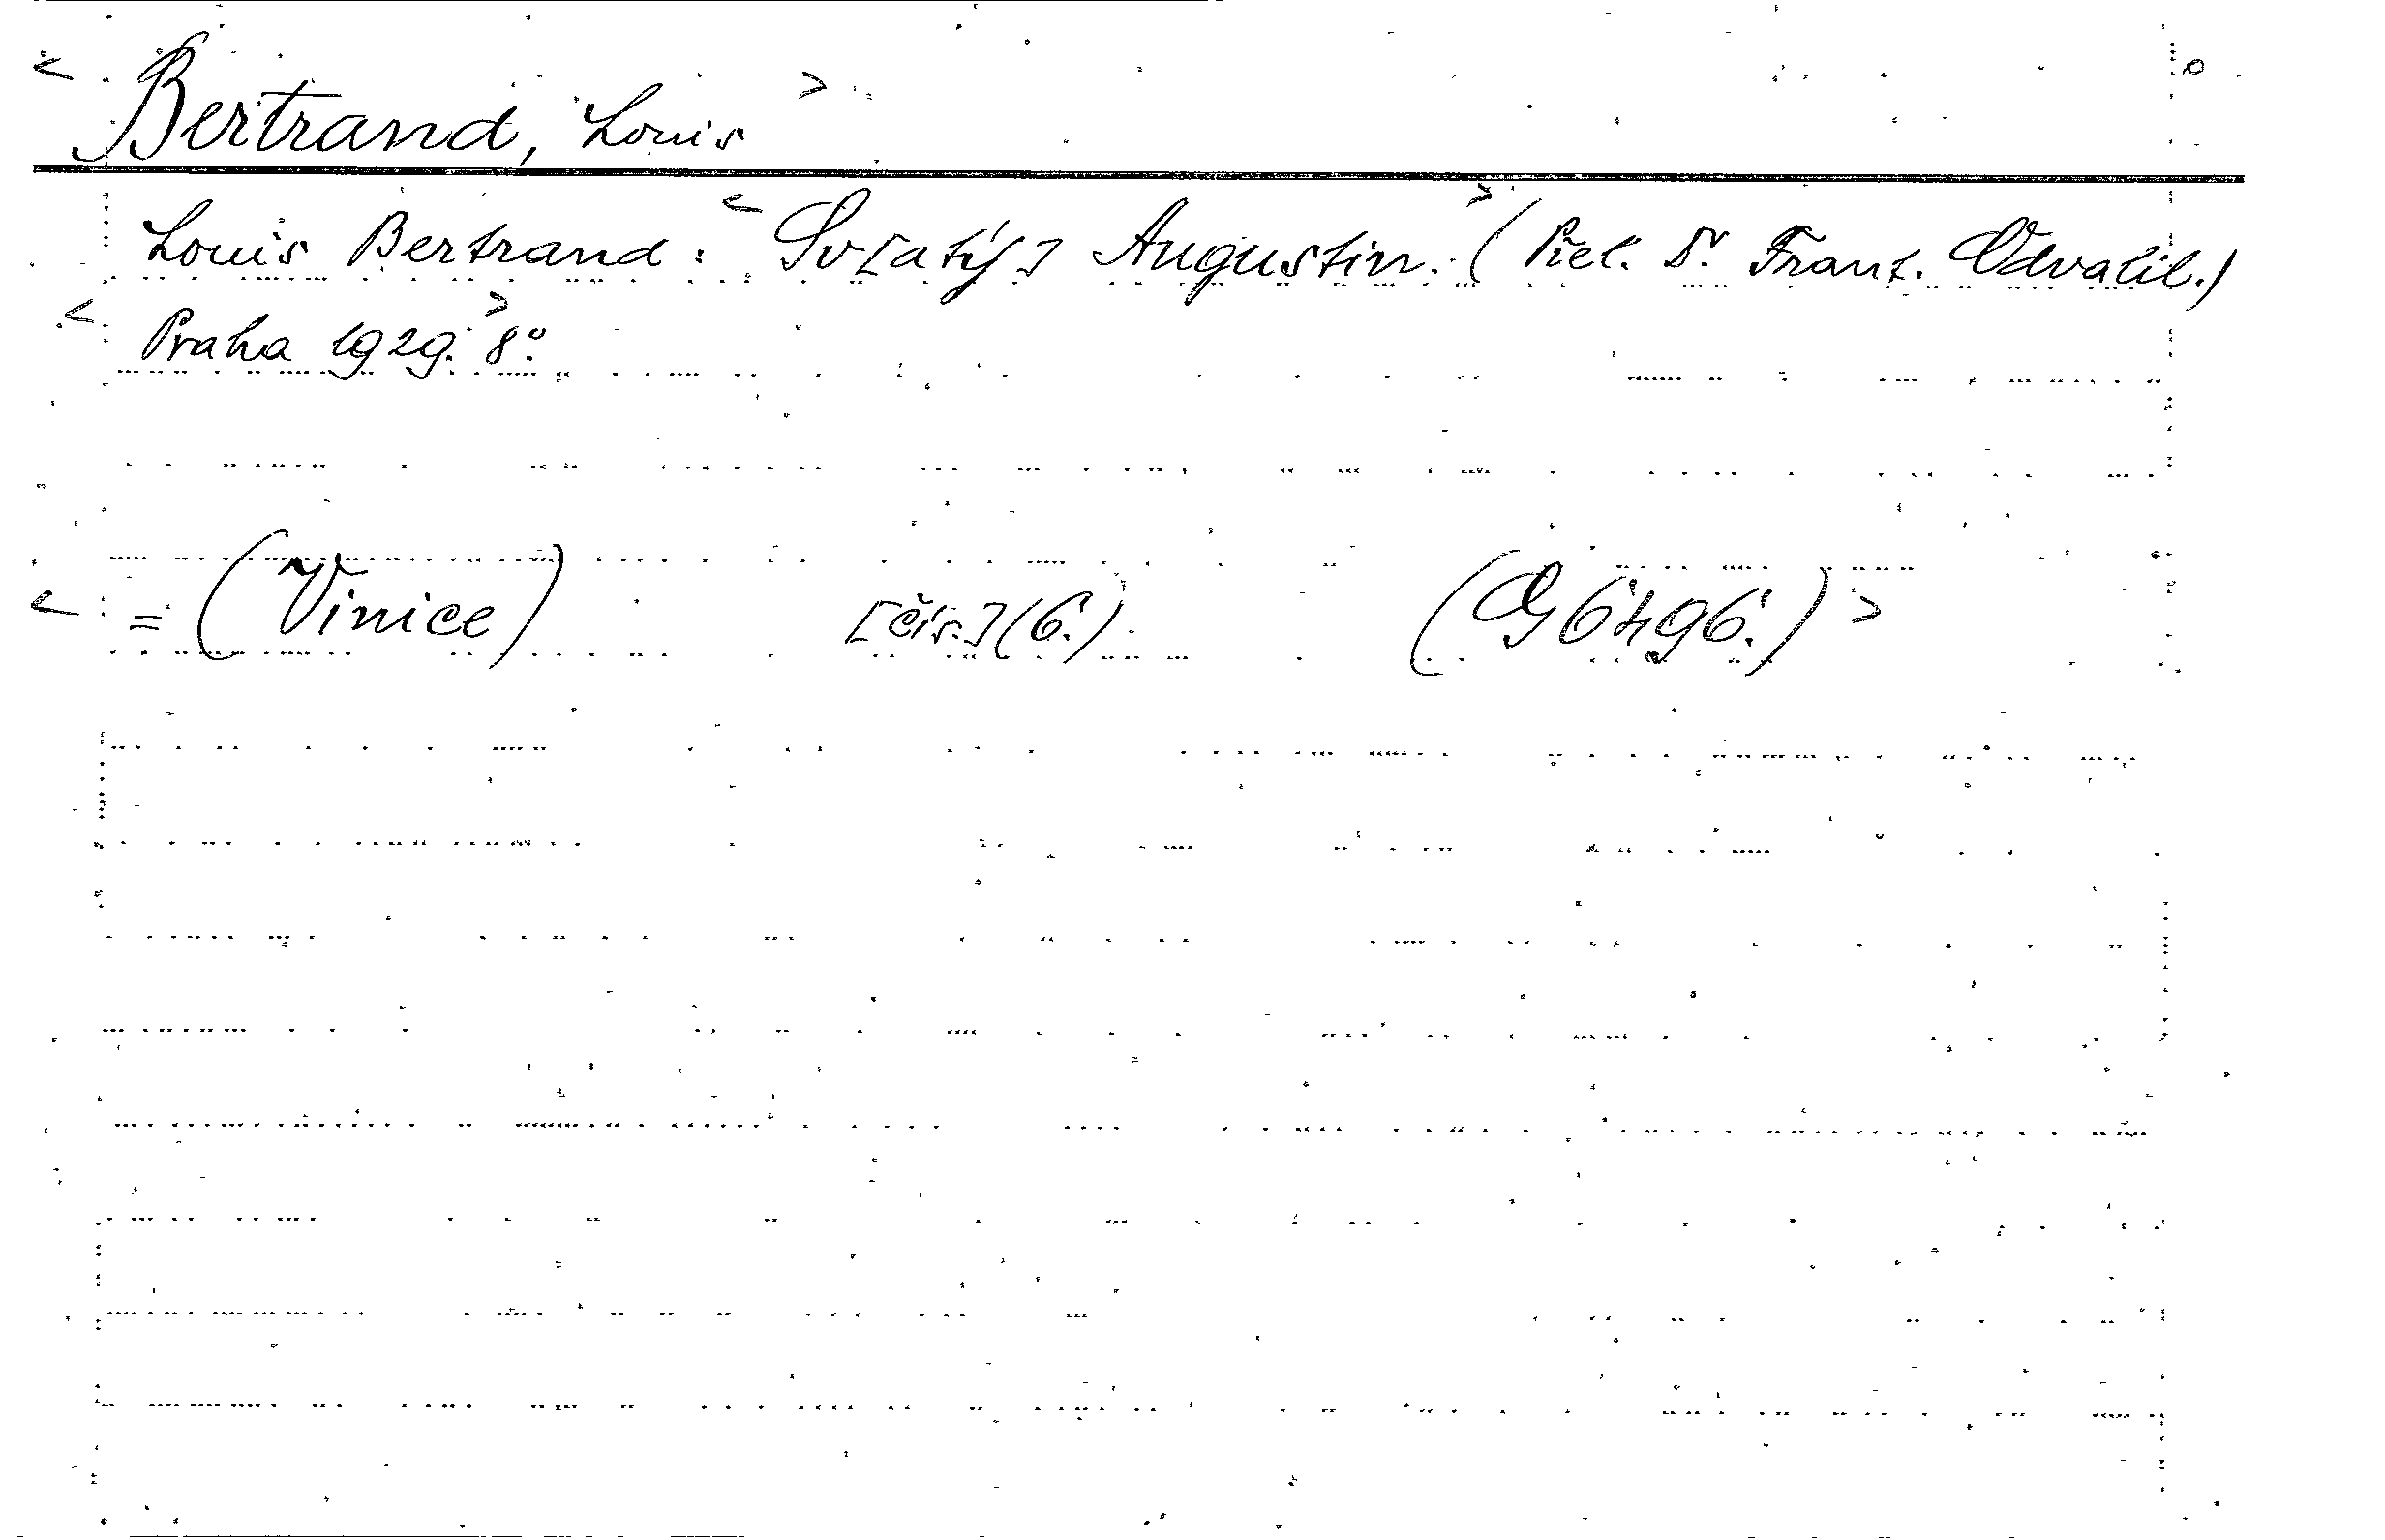 < Bertrand, Louis >
Louis Bertrand: < Sv[atý] Augustin. > (Přel. Dr. Frant. Odvalil.)
< Praha 1929. > 8°.
< = (Vinice) [čís.] (6.) (G 6496.) >